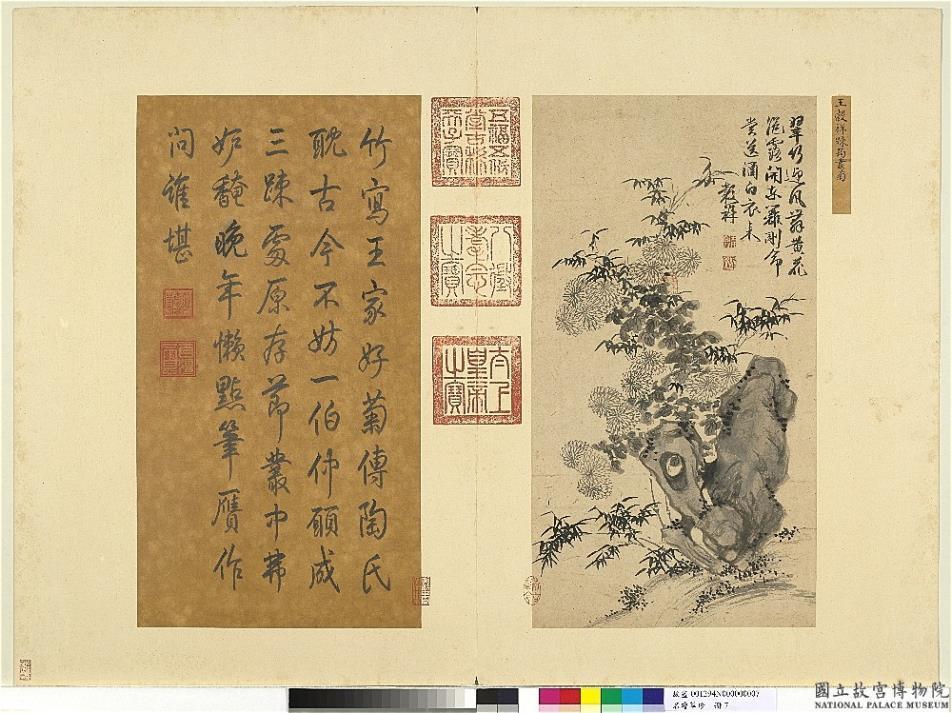 王穀祥
翠竹迎風舞黃花
浥露開東籬剛命
賞送酒白衣来
穀祥
五福五代
堂古稀
天子寶
八徵
耄念
之寶
太上
皇帝
之寶
竹寫王家好菊傳陶氏
耽古今不妨一伯仲頋成
三踈處原存節叢中弗
妒馣晚年懶點筆贋作
問誰堪
001294N000000007
國立故宮博物院
NATIONAL PALACE MUSEUM